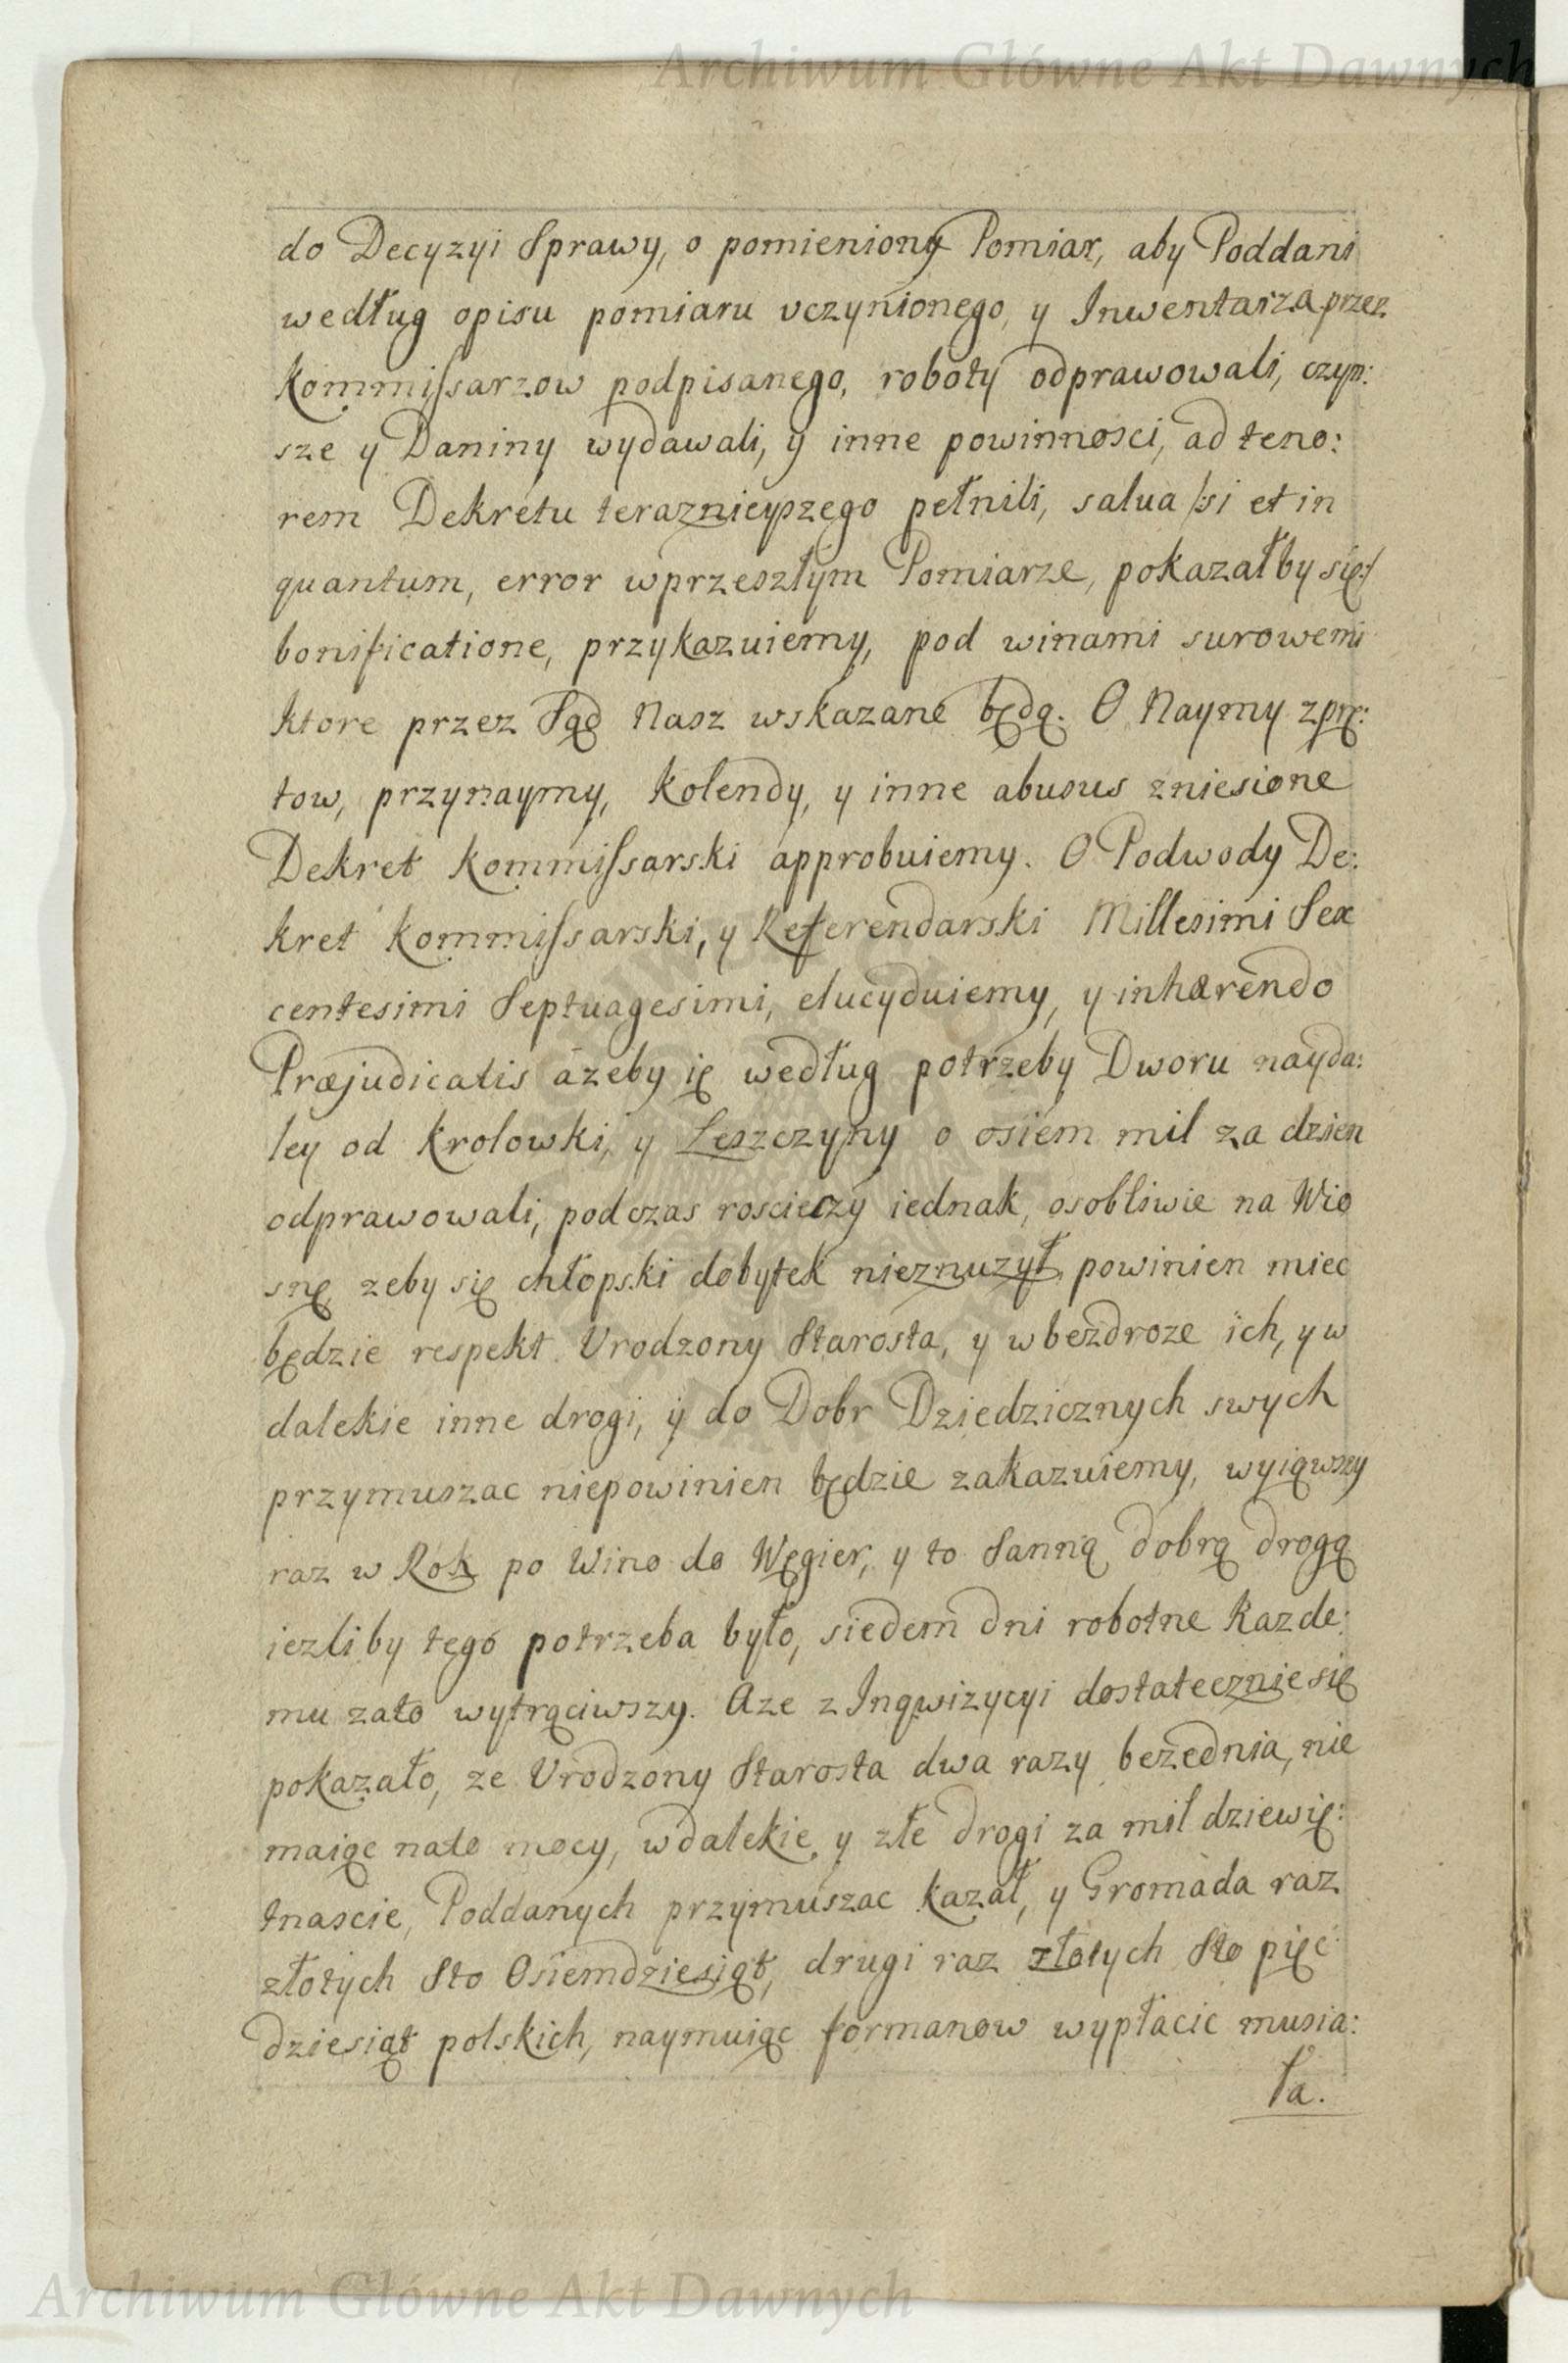 Archiwum Główne Akt Dawnych
do Decyzyi Sprawy, o pomieniony Pomiar, aby Poddani
według opisu pomiaru vczynionego, y Inwentarza przez
Kommissarzow podpisanego, roboty odprawowali, czyn:
sze y Daniny wydawali, y inne powinnosci, ad teno:
rem Dekretu teraznieyszego pełnili, salua /:si et in
quantum, error wprzeszłym Pomiarze, pokazałby się:/
bonificatione, przykazuiemy, pod winami surowemi
ktore przez Sąd Nasz wskazane będą. O Naymy zprę:
tow, przynaymy, Kolendy, y inne abusus zniesione
Dekret Kommissarski approbuiemy. O Podwody De:
kret Kommissarski, y Referendarski Millesimi Sex
centesimi Septuagesimi, elucyduiemy, y inhærendo
Præjudicatis azeby ię według potrzeby Dworu nayda:
ley od Krolowki, y Leszczyny o osiem mil za dzien
odprawowali, podczas roscieczy iednak, osobliwie na Wio
snę, zeby się chłopski dobytek nieznuzył, powinien miec
będzie respekt Vrodzony Starosta, y wbezdroze ich, y w
dalekie inne drogi, y do Dobr Dziedzicznych swych
przymuszac niepowinien będzie zakazuiemy, wyiąwszy
raz w Rok po Wino do Węgier, y to Sanną dobrą drogą
iezliby tego potrzeba było, siedem dni robotne Kazde:
mu zato wytrąciwszy. Aze z Inqwizycyi dostatecznie się
pokazało, ze Vrodzony Starosta dwa razy bezednia, nie
maiąc nato mocy, wdalekie y złe drogi za mil dziewię:
tnascie, Poddanych przymuszac kazał, y Gromada raz
złotych Sto Osiemdziesiąt, drugi raz złotych Sto pięc
dziesiąt polskich, naymuiąc formanow wypłacic musia:
ła.
Archiwum Główne Akt Dawnych